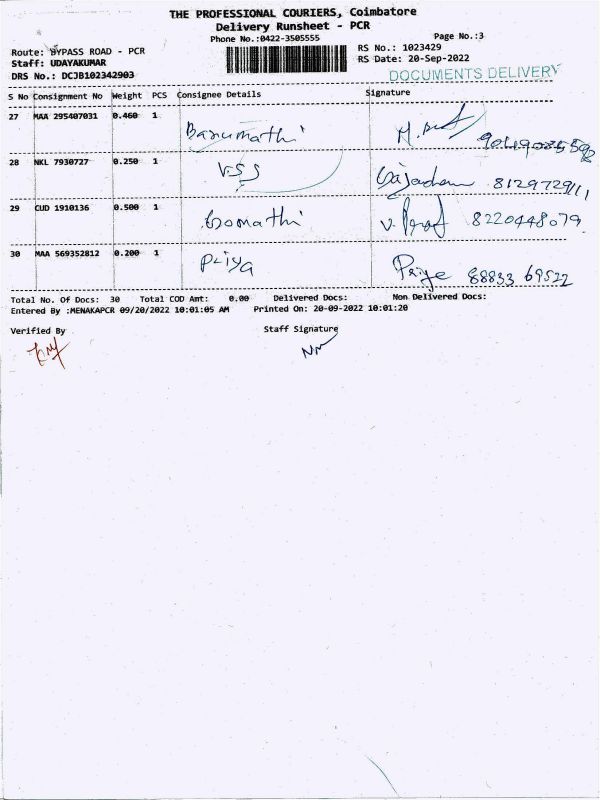 THE PROFESSIONAL COURIERS, Coimbatore
Delivery Runsheet - PCR
Phone No.:0422-3505555
Page No.:3
Route: BYPASS ROAD - PCR
RS No.: 1023429
Staff: UDAYAKUMAR
RS Date: 20-Sep-2022
DRS No.: DCJB102342903
DOCUMENTS DELIVERY
S No Consignment No Weight PCS Consignee Details Signature
27 MAA 295407031 0.460 1 Banumathi
28 NKL 7930727 0.250 1 VSS 8129729111
29 CUD 1910136 0.500 1 Gomathi 8220448079
30 MAA 569352812 0.200 1 Priya Priye 88833 69522
Total No. Of Docs: 30 Total COD Amt: 0.00 Delivered Docs: Non Delivered Docs:
Entered By :MENAKAPCR 09/20/2022 10:01:05 AM Printed On: 20-09-2022 10:01:20
Verified By Staff Signature